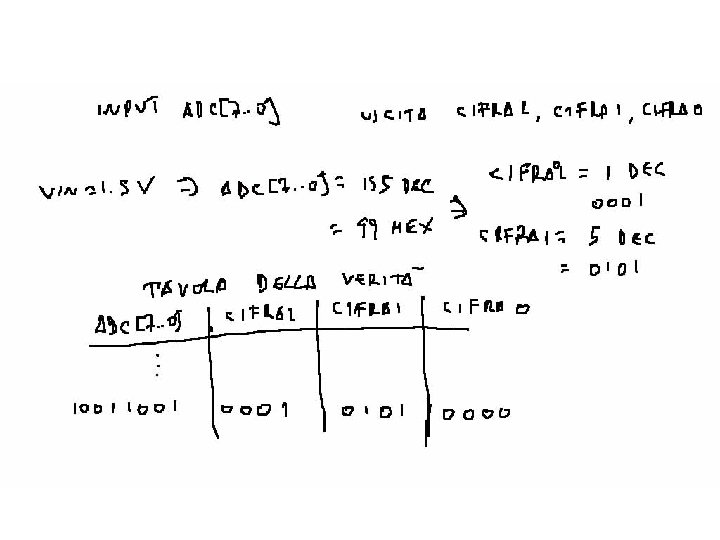 INPUT ADC[7..0] USCITA CIFRA2, CIFRA1, CIFRA0
VIN=1.5V ⇒ ADC[7..0] = 155 DEC
= 99 HEX ⇒
CIFRA2 = 1 DEC
0001
CIFRA1 = 5 DEC
= 0101
TAVOLA DELLA VERITA~
ADC[7..0] CIFRA2 CIFRA1 CIFRA0
10011001 0001 0101 0000